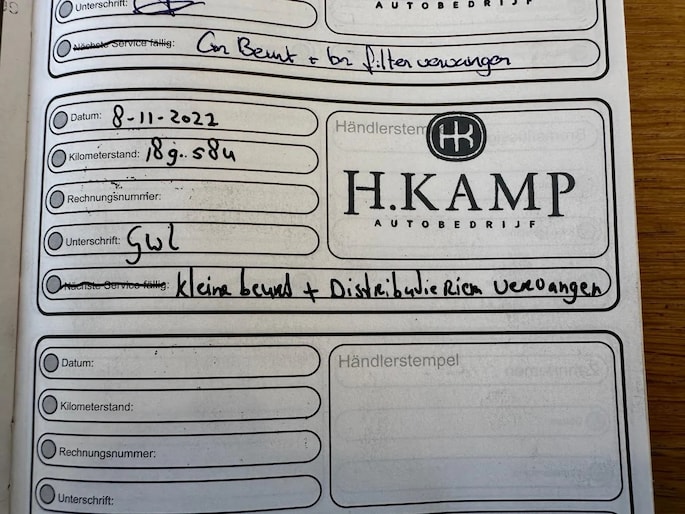 Unterschrift:
AUTOBEDRIJF
Nächste Service fällig: Gr Beurt + bri filter vervangen
Datum: 8-11-2022
Händlerstempel
HK
Kilometerstand: 189.584
H.KAMP
AUTOBEDRIJF
Rechnungsnummer:
Unterschrift:
Nächste Service fällig: kleine beurt + Distributie Riem vervangen
Datum:
Händlerstempel
Kilometerstand:
Rechnungsnummer:
Unterschrift: